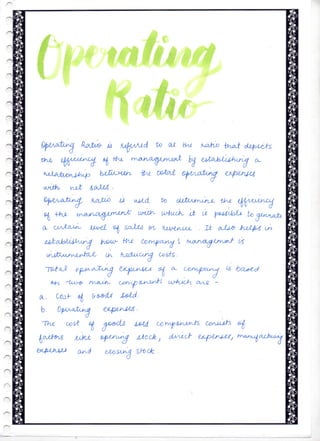 Operating
Ratio
Operating Ratio is referred to as the ratio that depicts
the efficiency of the management by establishing a
relationship between the total operating expenses
with net sales.
Operating ratio is used to determine the efficiency
of the management with which it is possible to generate
a certain level of sales or revenue. It also helps in
establishing how the company's management is
instrumental in reducing costs.
Total operating expenses of a company is based
on two main components which are -
a. Cost of Goods Sold
b. Operating expenses.
The cost of goods sold components consists of
factors like opening stock, direct expenses, manufacturing
expenses and closing stock